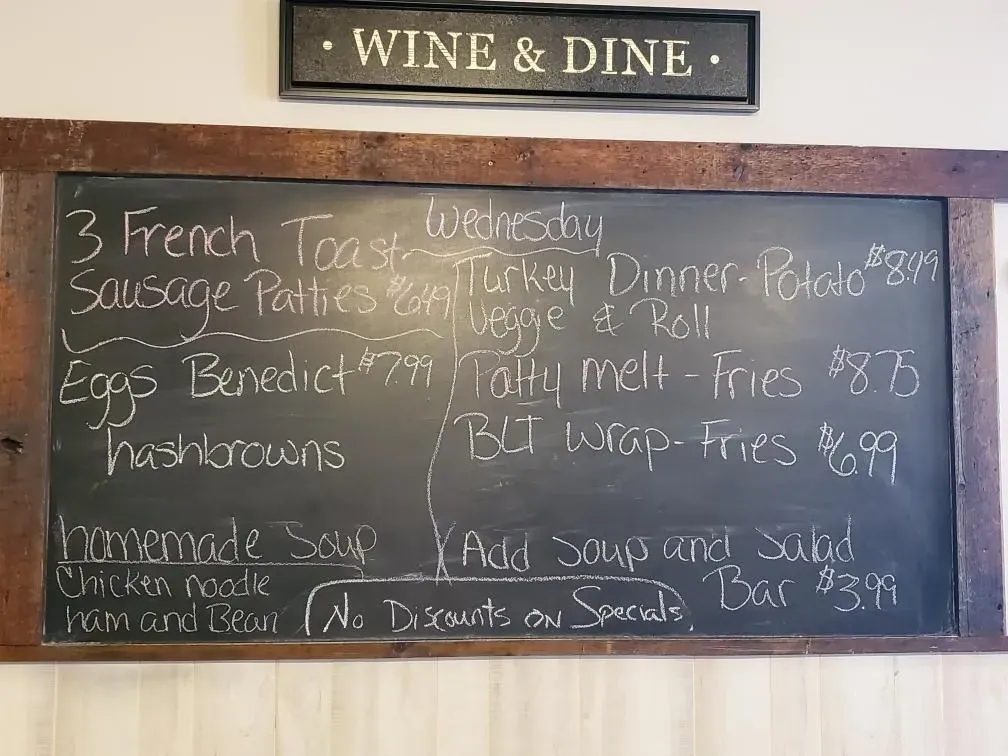 • WINE & DINE •
Wednesday
3 French Toast
Sausage Patties $6.49
Eggs Benedict $7.99
hashbrowns
homemade Soup
Chicken noodle
ham and Bean
Turkey Dinner-Potato $8.49
Veggie & Roll
Patty melt - Fries $8.75
BLT wrap - Fries $6.99
Add Soup and Salad
Bar $3.99
No Discounts on Specials.